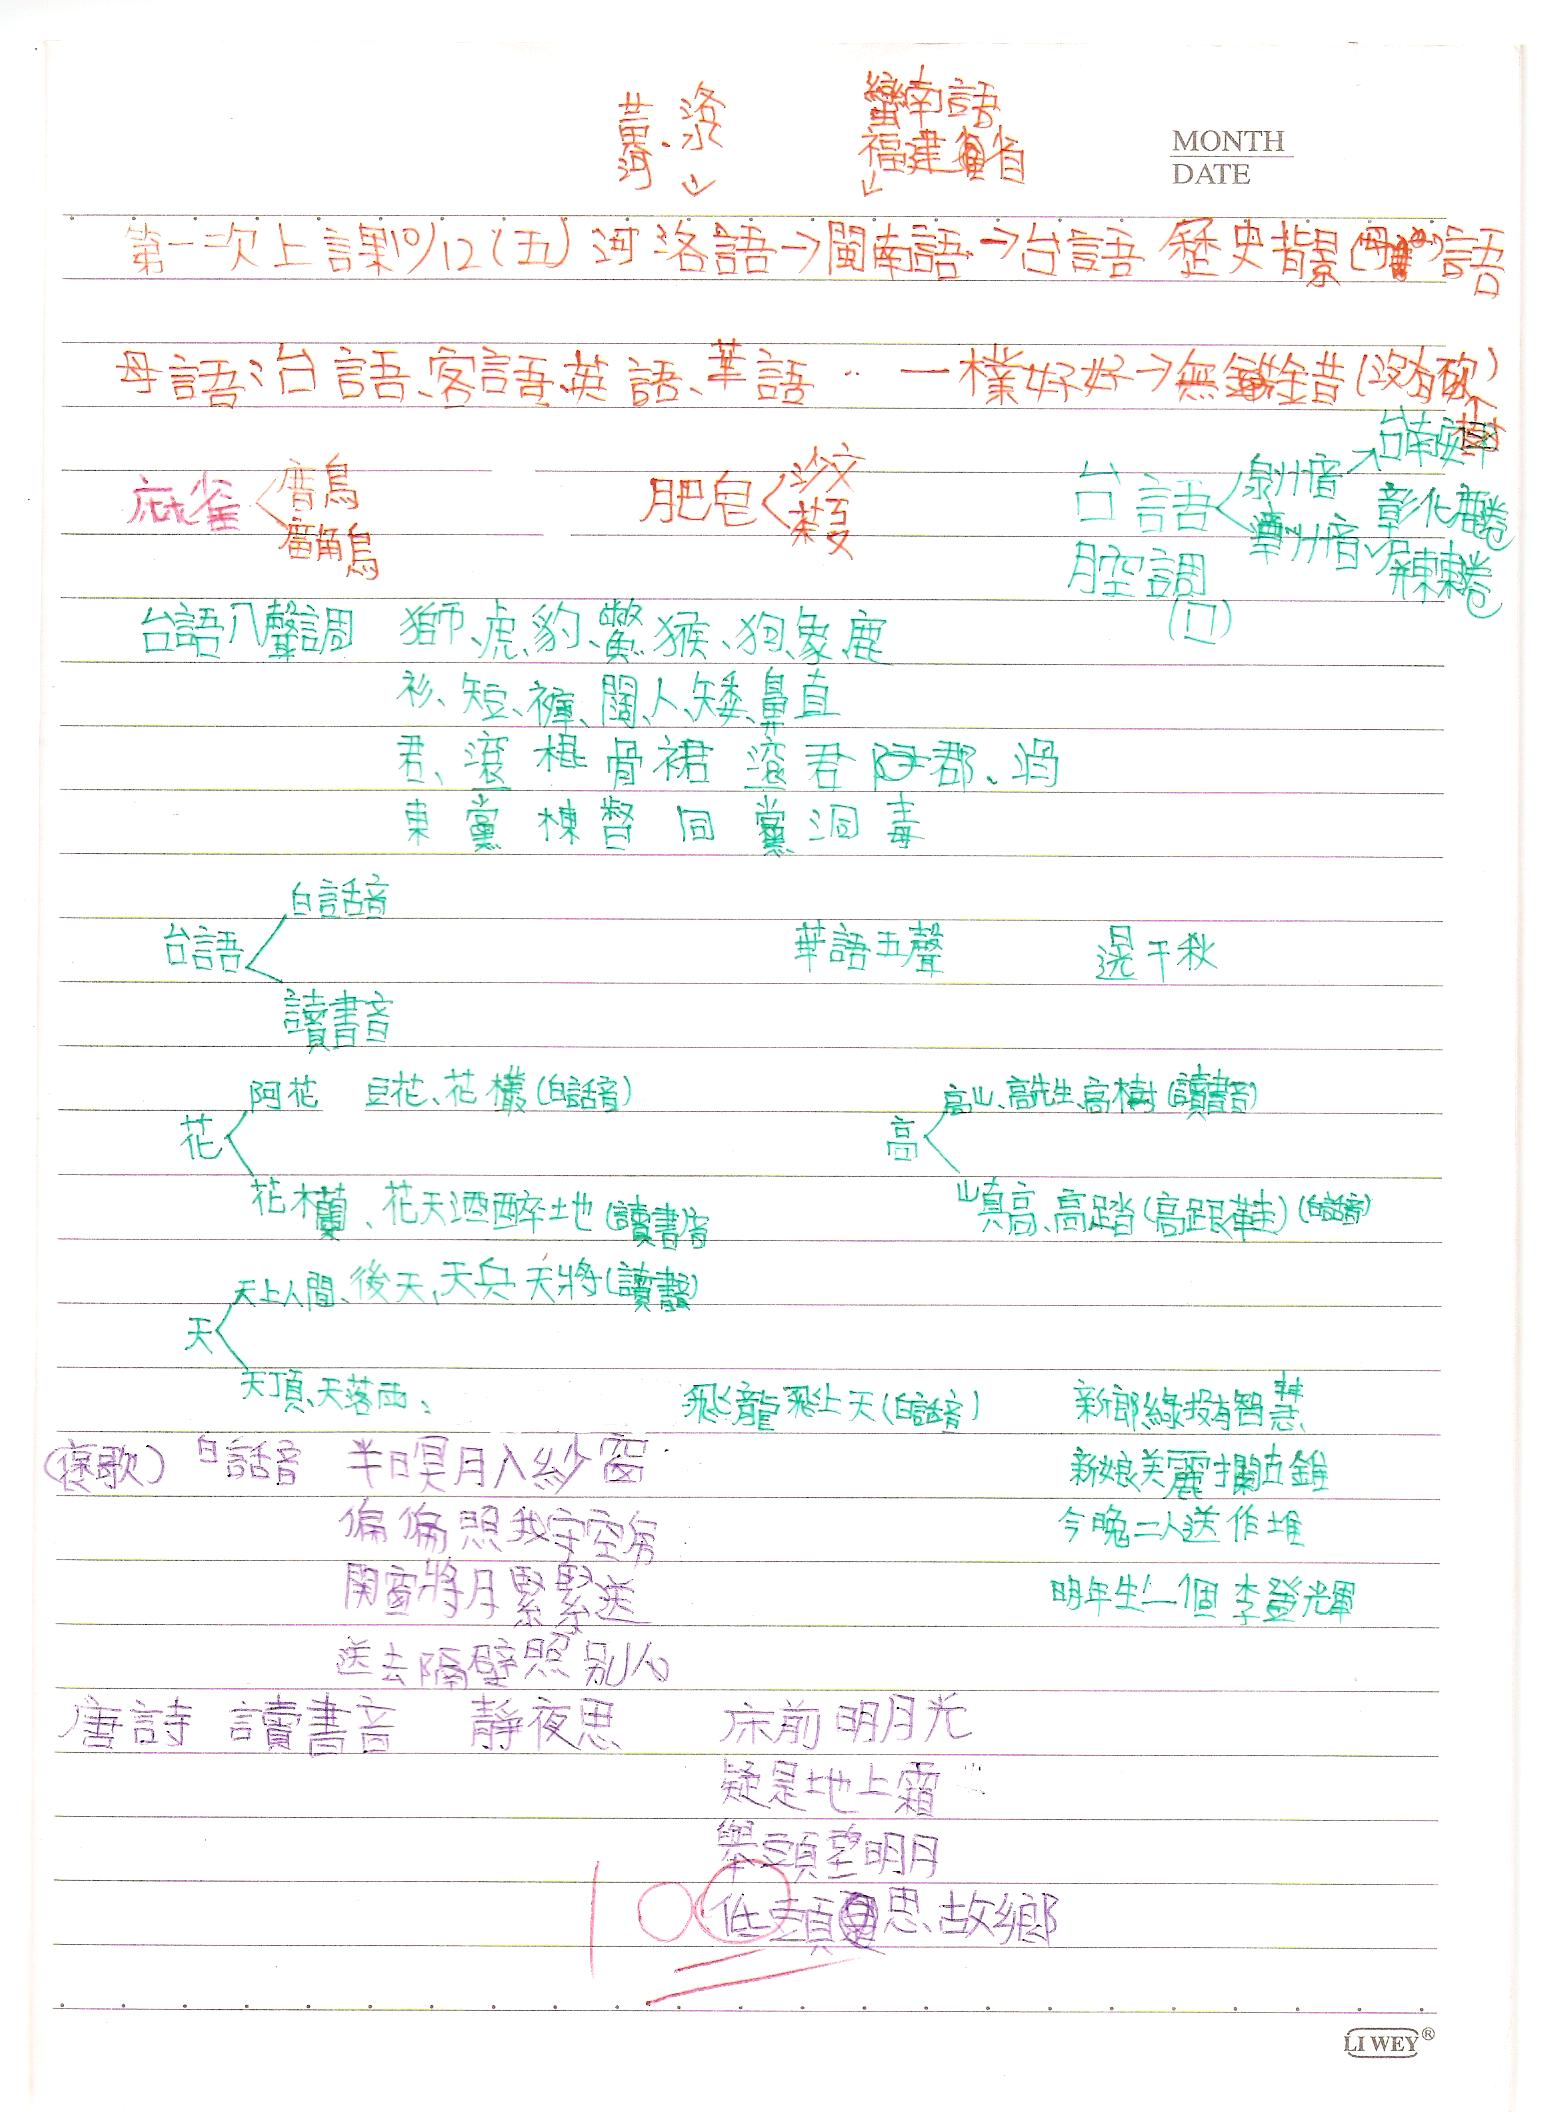 黃河、洛水
蠻南語
福建省
MONTH
DATE
第一次上課10/12(五) 河洛語→閩南語→台語 歷史背景 語
母語:台語、客語、英語、華語‥ 一樣好好→無錯(沒有破)
台南安平
麻雀 厝鳥
厝角鳥
肥皂 沙文
茶
台語腔調(口) 泉州音 漳州音
彰化鹿港
屏東東港
台語八聲調 獅、虎、豹、鱉、猴、狗、象、鹿
衫、短、褲、闊、人、矮、鼻、直
君、滾 棍 骨 裙 滾 君 郡、滑
東 黨 棟 督 同 黨 洞 毒
台語 白話音
讀書音
華語五聲 盪千秋
花 阿花 豆花、花欉(白話音)
花木蘭、花天酒醉地(讀書音)
高 高山、高先生、高樹(讀書音)
山真高、高踏(高跟鞋)(白話音)
天 天上人間、後天、天兵天將(讀書音)
天頂、天落雨、 飛龍飛上天(白話音)
新郎緣投有智慧
新娘美麗攔古錐
今晚二人送作堆
明年生一個李登輝
(褒歌) 白話音 半暝月入紗窗
偏偏照我守空房
開窗將月緊緊送
送去隔壁照別人
唐詩 讀書音 靜夜思 床前明月光
疑是地上霜
舉頭望明月
低頭思故鄉
100
LI WEY®